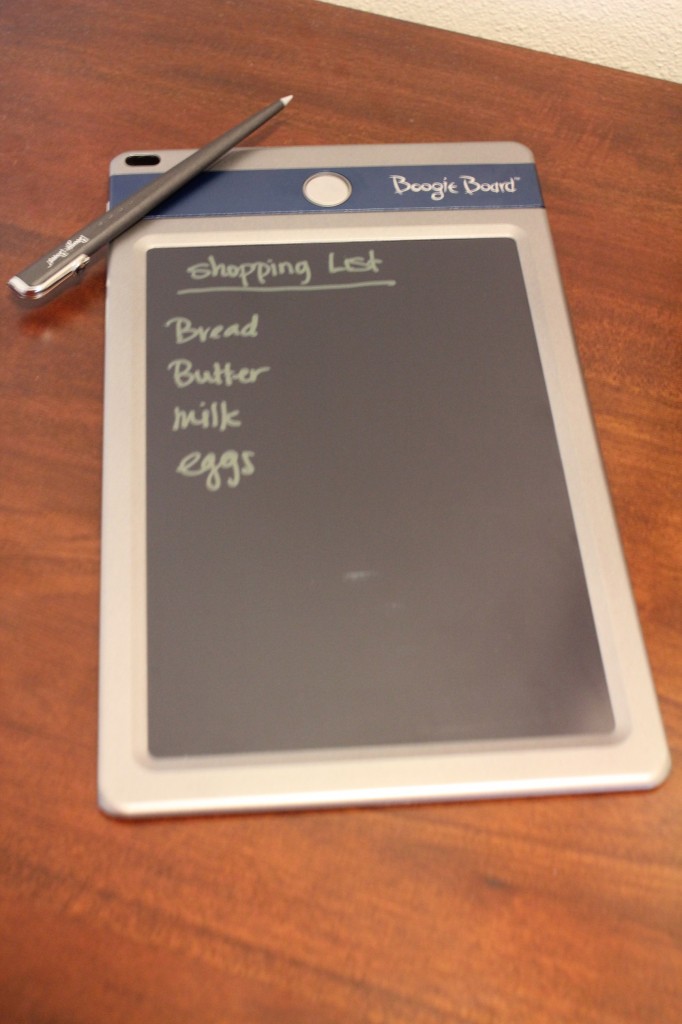 Boogie Board™
Boogie Board™
shopping List
Bread
Butter
milk
eggs